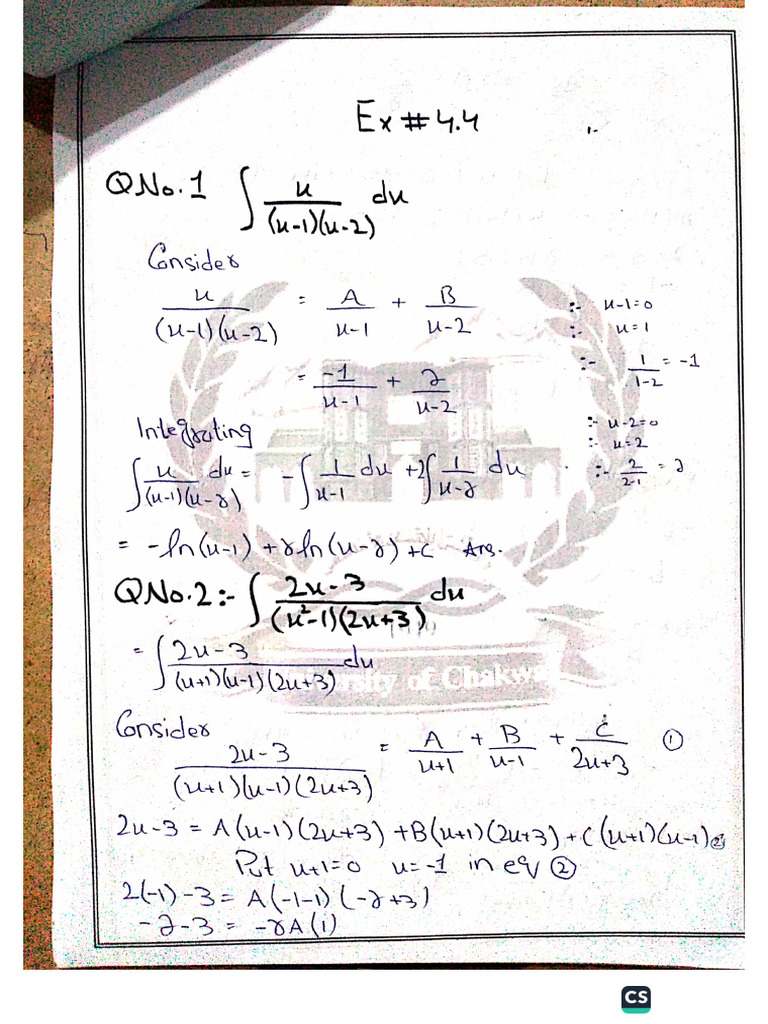 Ex # 4.4
QNo.1 ∫ u/(u-1)(u-2) du
Consider
u/(u-1)(u-2) = A/u-1 + B/u-2
:- u-1=0
:- u=1
= -1/u-1 + 2/u-2
:- 1/1-2 = -1
Integrating
:- u-2=0
:- u=2
∫ u/(u-1)(u-2) du = -∫ 1/u-1 du + 2∫ 1/u-2 du
:- 2/2-1 = 2
= -ln(u-1) + 2ln(u-2) + c Ans.
QNo.2:- ∫ 2u-3/(u²-1)(2u+3) du
= ∫ 2u-3/(u+1)(u-1)(2u+3) du
University of Chakwal
Consider
2u-3/(u+1)(u-1)(2u+3) = A/u+1 + B/u-1 + C/2u+3 ①
2u-3 = A(u-1)(2u+3) + B(u+1)(2u+3) + C(u+1)(u-1) ②
Put u+1=0 u=-1 in eq ②
2(-1)-3 = A(-1-1)(-2+3)
-2-3 = -2A(1)
CS